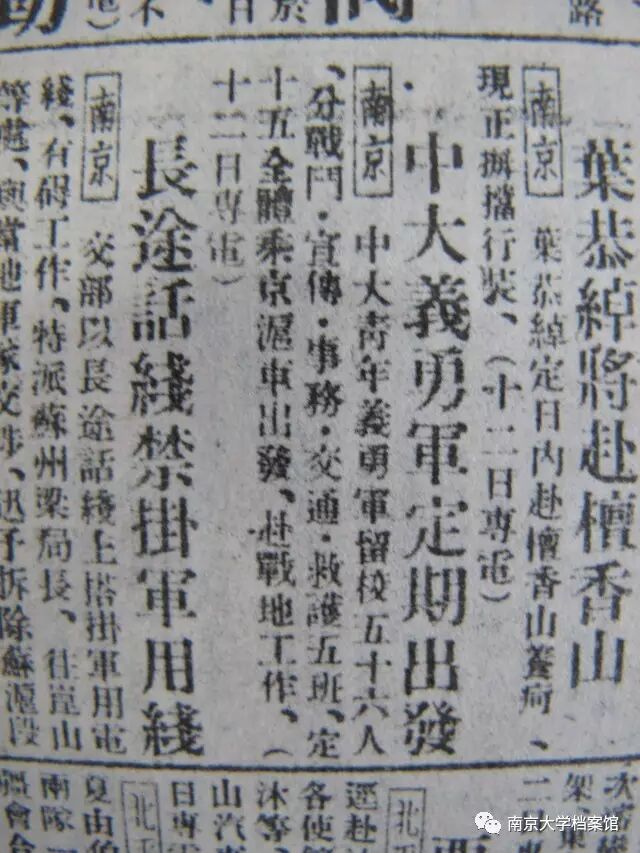 路
於
日
電）
不
葉恭綽將赴檀香山
南京 葉恭綽定日內赴檀香山養疴、
現正摒擋行裝、（十二日專電）
中大義勇軍定期出發
南京 中大靑年義勇軍留校五十六人
、分戰鬥・宣傳・事務・交通・救護五班、定
十五全體乘京滬車出發、赴戰地工作、（
十二日專電）
長途話綫禁掛軍用綫
南京 交部以長途話綫上搭掛軍用電
綫、有碍工作、特派蘇州梁局長、往崑山
等處、與當地軍隊交涉、迅予拆除蘇滬段
架、東
二
北
巡赴
各使
沐等、
山汽
日專
北
夏由
兩隊
疆會
南京大学档案馆